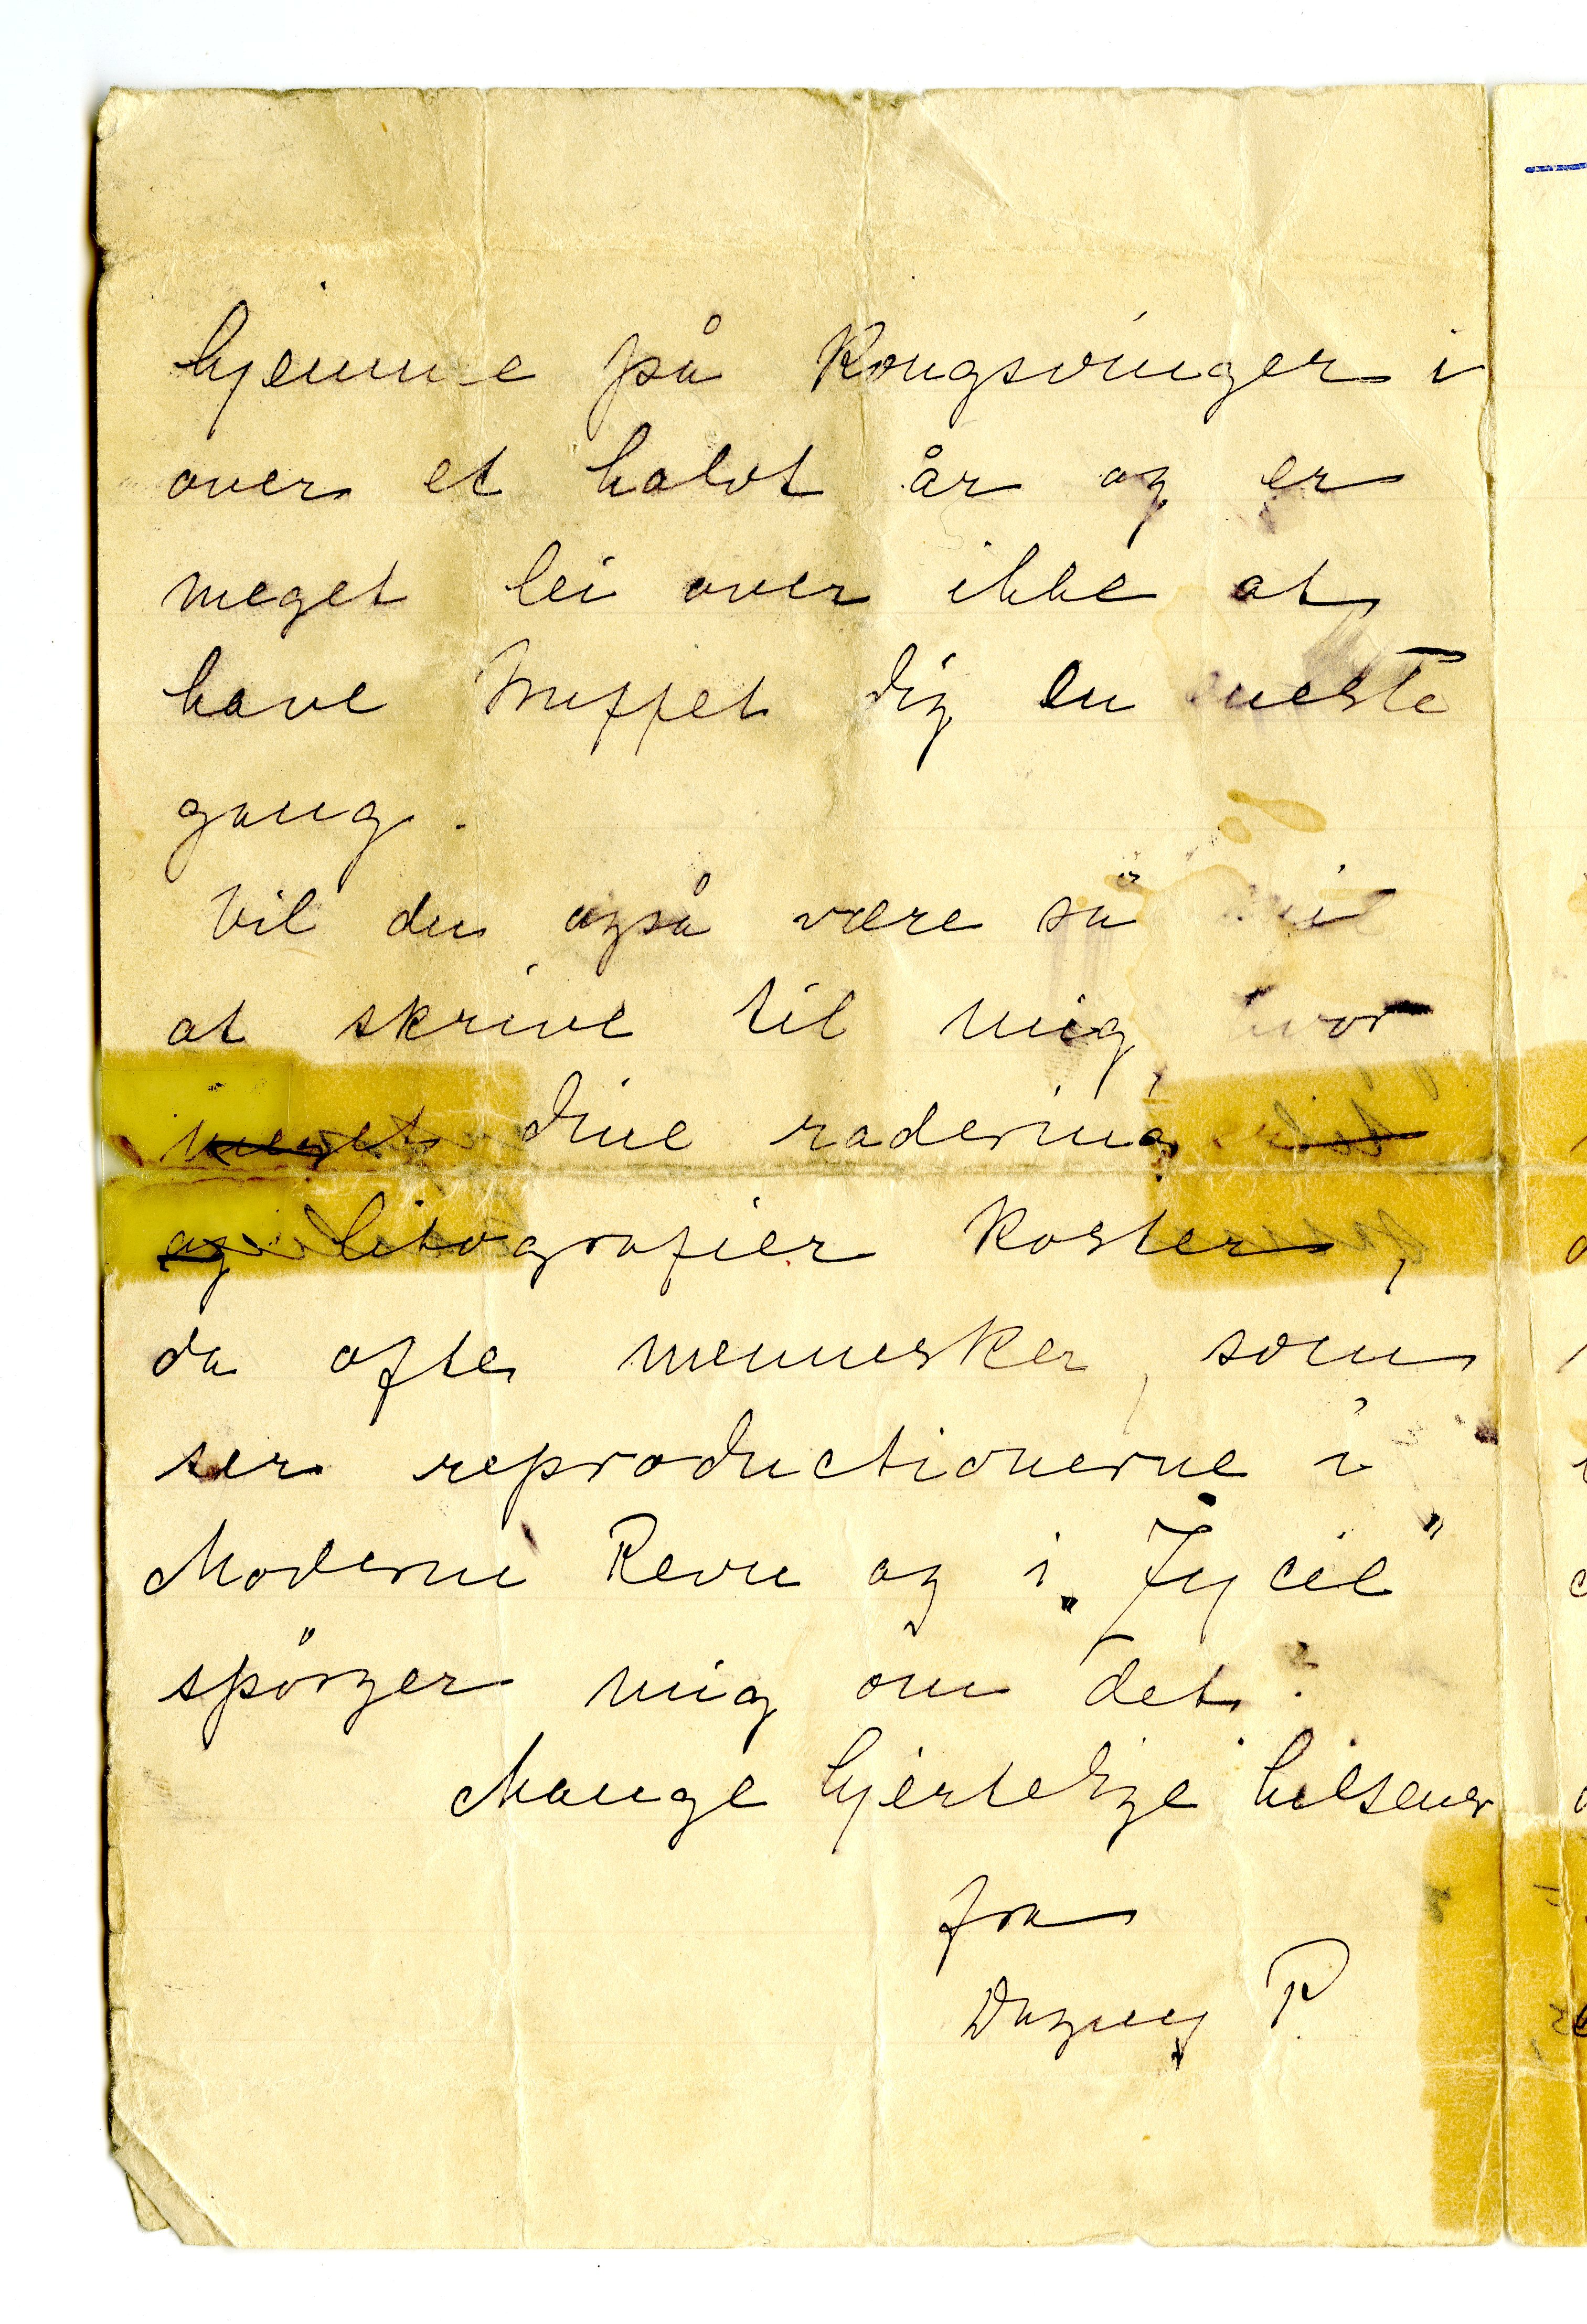 hjemme på Kongsvinger i
over et halvt år og er
meget lei over ikke at
have truffet dig en eneste
gang.
Vil du også være så
at skrive til mig hvor
meget dine radering
og litografier koster,
da ofte mennesker, som
ser reproductionerne i
Moderni Revu og i „Zycie"
spörger mig om det.
Mange hjertelige hilsener
fra
Dagny P.